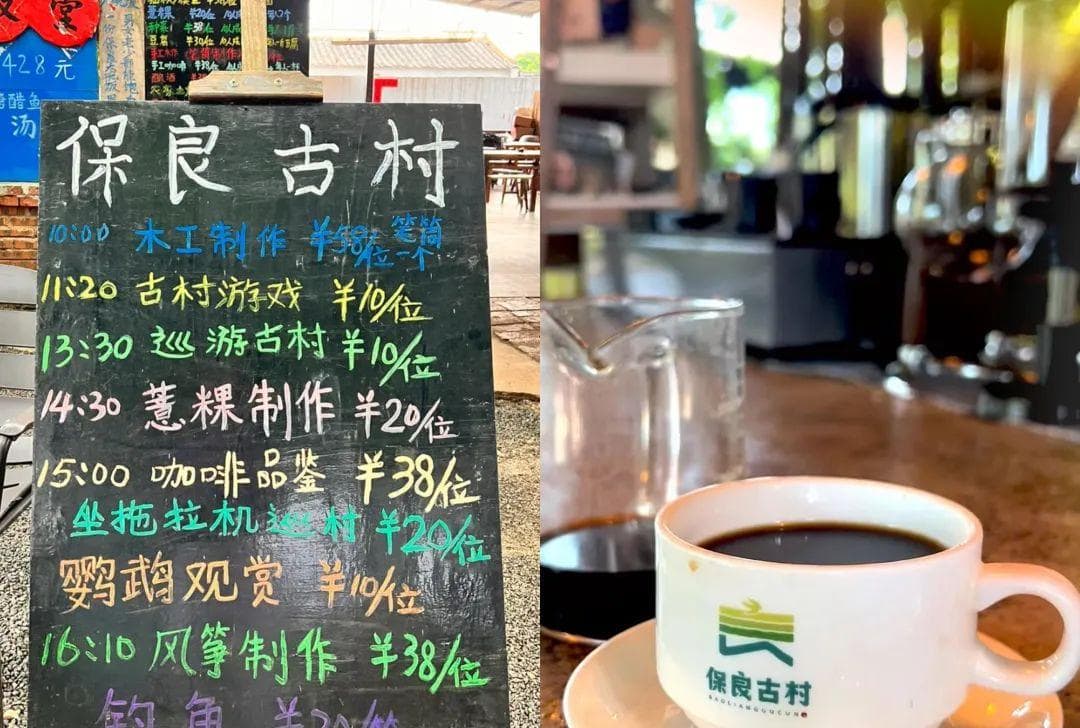 428元
醋鱼
汤
薏粿 ¥20/位
¥38/位
豆腐 ¥30/位
手工咖啡 ¥38/位
保良古村
10:00 木工制作 ¥38/位 笔筒一个
11:20 古村游戏 ¥10/位
13:30 巡游古村 ¥10/位
14:30 薏粿制作 ¥20/位
15:00 咖啡品鉴 ¥38/位
坐拖拉机巡村 ¥20/位
鹦鹉观赏 ¥10/位
16:10 风筝制作 ¥38/位
钓鱼 ¥20/
保良古村
BAOLIANGGUCUN